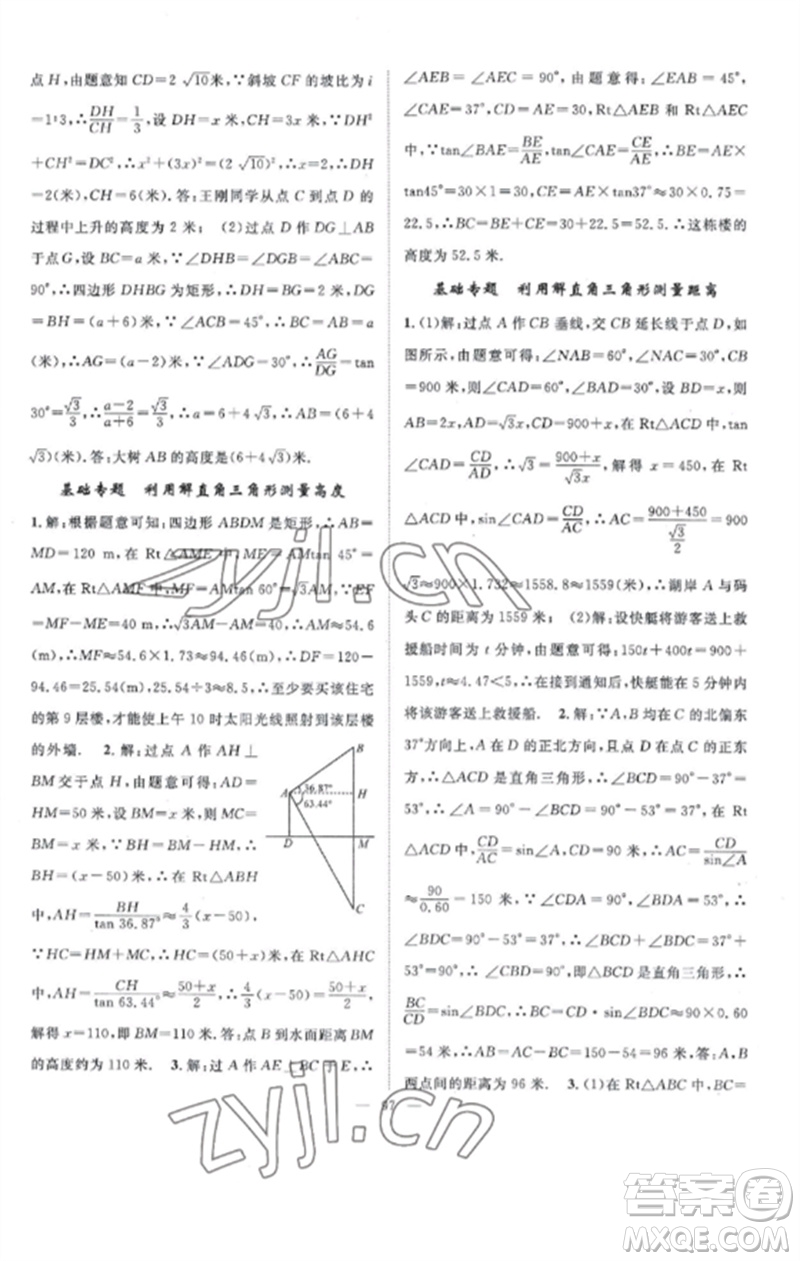 点 H,由题意知 CD=2 √10米,∵斜坡 CF 的坡比为 i
=1∶3,∴DH/CH=1/3,设 DH=x 米,CH=3x 米,∵DH²
+CH²=DC²,∴x²+(3x)²=(2√10)²,∴x=2,∴DH
=2(米),CH=6(米).答:王刚同学从点 C 到点 D 的
过程中上升的高度为 2 米; (2)过点 D 作 DG⊥AB
于点 G,设 BC=a 米,∵∠DHB=∠DGB=∠ABC=
90°,∴四边形 DHBG 为矩形,∴DH=BG=2 米,DG
=BH=(a+6)米,∵∠ACB=45°,∴BC=AB=a
(米),∴AG=(a-2)米,∵∠ADG=30°,∴AG/DG=tan
30°=√3/3,∴(a-2)/(a+6)=√3/3,∴a=6+4√3,∴AB=(6+4
√3)(米).答:大树 AB 的高度是(6+4√3)米.
基础专题 利用解直角三角形测量高度
1.解:根据题意可知:四边形 ABDM 是矩形,∴AB=
MD=120 m,在 Rt△AME 中,ME=AMtan 45°=
AM,在 Rt△AMF 中,MF=AMtan 60°=√3AM,∵EF
=MF-ME=40 m,∴√3AM-AM=40,∴AM≈54.6
(m),∴MF≈54.6×1.73≈94.46(m),∴DF=120-
94.46=25.54(m),25.54÷3≈8.5,∴至少要买该住宅
的第 9 层楼,才能使上午 10 时太阳光线照射到该层楼
的外墙. 2.解:过点 A 作 AH⊥
BM 交于点 H,由题意可得:AD=
HM=50 米,设 BM=x 米,则 MC=
BM=x 米,∵BH=BM-HM,∴
BH=(x-50)米,∴在 Rt△ABH
中,AH=BH/tan 36.87°≈4/3(x-50),
∵HC=HM+MC,∴HC=(50+x)米,∴在 Rt△AHC
中,AH=CH/tan 63.44°≈(50+x)/2,∴4/3(x-50)=(50+x)/2,
解得 x=110,即 BM=110 米.答:点 B 到水面距离 BM
的高度约为 110 米. 3.解:过 A 作 AE⊥BC 于 E,∴
B
A
36.87°
H
63.44°
D
M
C
∠AEB=∠AEC=90°,由题意得:∠EAB=45°,
∠CAE=37°,CD=AE=30,Rt△AEB 和 Rt△AEC
中,∵tan∠BAE=BE/AE,tan∠CAE=CE/AE,∴BE=AE×
tan45°=30×1=30,CE=AE×tan37°≈30×0.75=
22.5,∴BC=BE+CE=30+22.5=52.5,∴这栋楼的
高度为 52.5 米.
基础专题 利用解直角三角形测量距离
1.(1)解:过点 A 作 CB 垂线,交 CB 延长线于点 D,如
图所示,由题意可得:∠NAB=60°,∠NAB=60°,CB
=900 米,则∠CAD=60°,∠BAD=30°,设 BD=x,则
AB=2x,AD=√3x,CD=900+x,在 Rt△ACD 中,tan
∠CAD=CD/AD,∴√3=(900+x)/(√3x),解得 x=450,在 Rt
△ACD 中,sin∠CAD=CD/AC,∴AC=(900+450)/(√3/2)=900
√3≈900×1.732≈1558.8≈1559(米),∴湖岸 A 与码
头 C 的距离为 1559 米; (2)解:设快艇将游客送上救
援船时间为 t 分钟,由题意可得:150t+400t=900+
1559,∴t≈4.47<5,∴在接到通知后,快艇能在 5 分钟内
将该游客送上救援船. 2.解:∵A、B 均在 C 的北偏东
37°方向上,A 在 D 的正北方向,且点 D 在 C 的正东方
向,∴△ACD 是直角三角形,∴∠BCD=90°-37°=
53°,∴∠A=90°-∠BCD=90°-53°=37°,在 Rt
△ACD 中,CD/AC=sin∠A,CD=90 米,∴AC=CD/sin∠A
≈90/0.60=150 米,∵∠CDA=90°,∠BDA=53°,∴
∠BDC=90°-53°=37°,∴∠BCD+∠BDC=37°+
53°=90°,∴∠CBD=90°,即△BCD 是直角三角形,∴
BC/CD=sin∠BDC,∴BC=CD·sin∠BDC≈90×0.60
=54 米,∴AB=AC-BC=150-54=96 米,答:A、B
两点间的距离为 96 米. 3.(1)在 Rt△ABC 中,BC=
— 67 —
zyjl.cn
zyjl.cn
答案卷
MXQE.COM